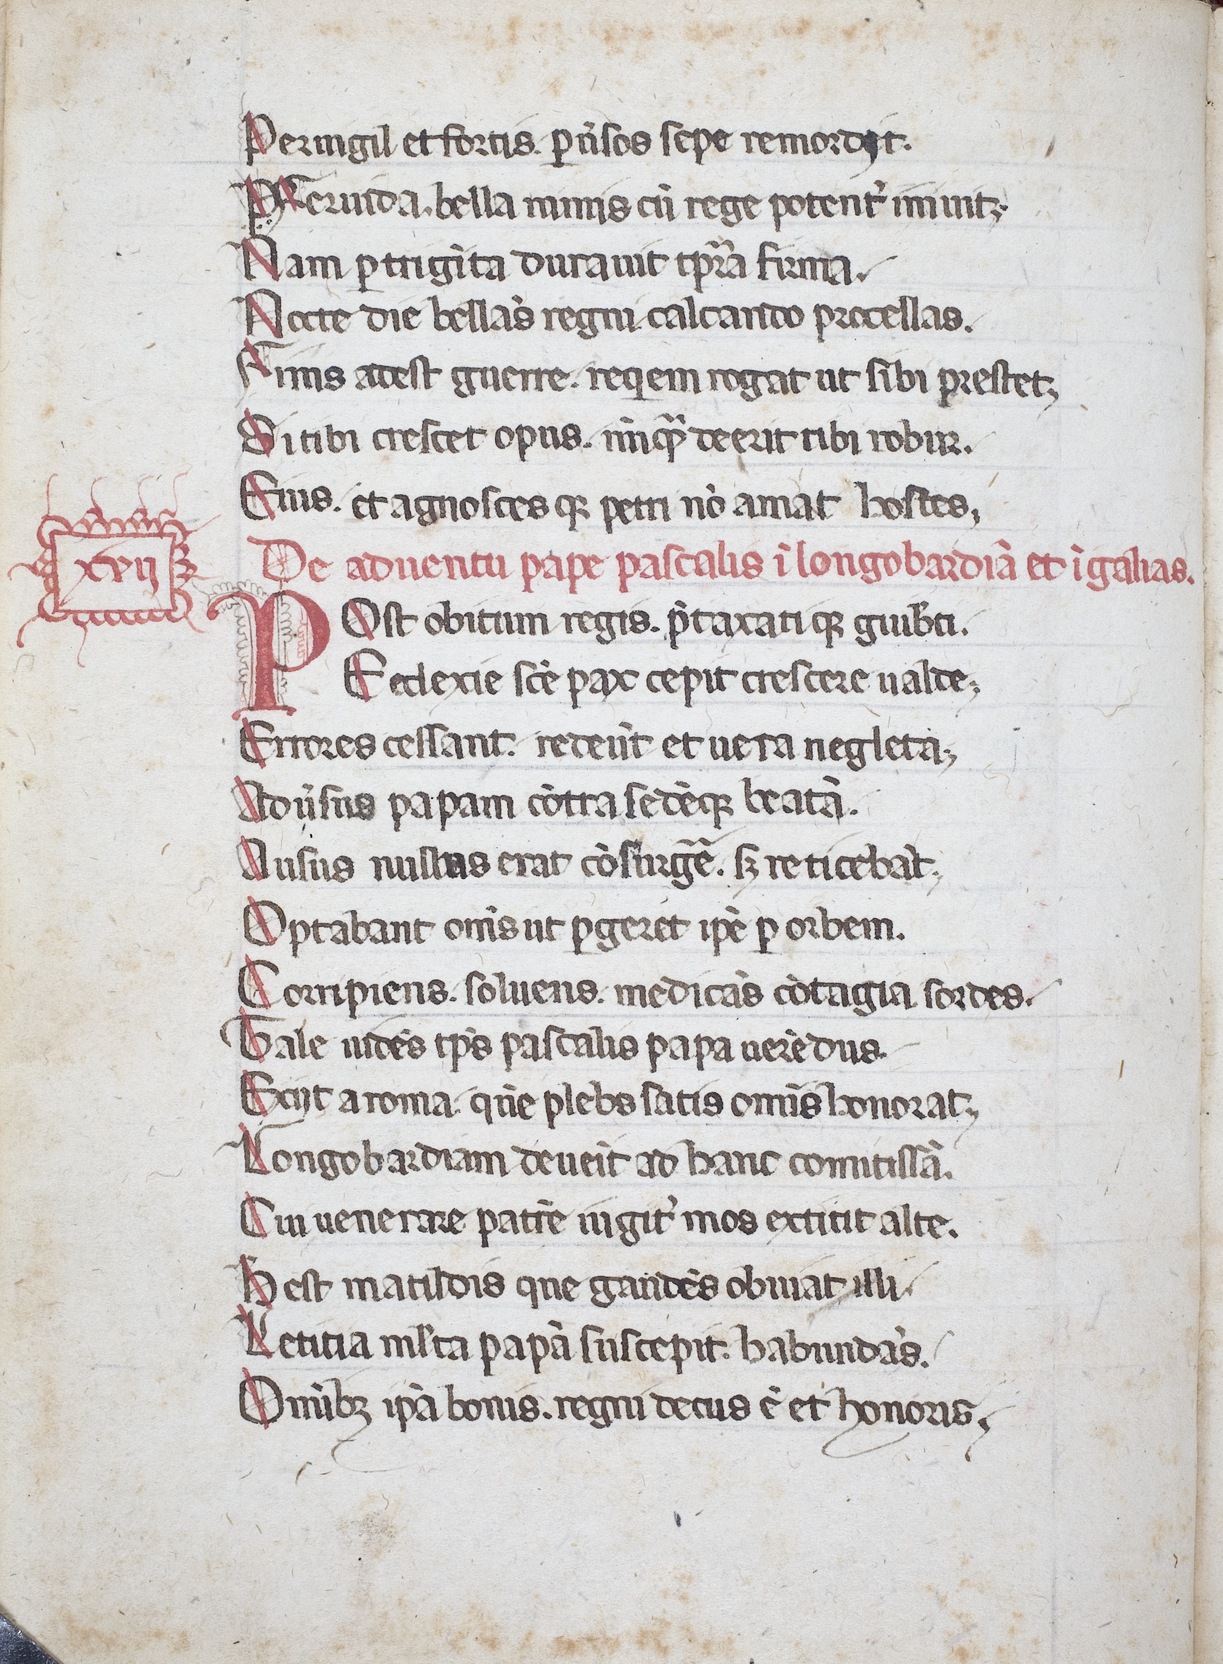 Peruigil et fortis. ꝑũsos sepe remordyt.
Feruida. bella nimis cũ rege potent᷑ iniuit;
Nam ꝑ trigĩta durauit tp̃ra firma.
Nocte die bellãs regni calcando procellas.
Finis adest guerre. reqiem rogat ut sibi prestet;
Si tibi crescet opus. nũqͣꝫ deerit tibi robur.
Eius. et agnosces qꝫ petri nõ amat hostes;
XVII
De aduentu pape pascalis ĩ longobardiã et ĩ galias.
POst obitum regis. p̃taxati qꝫ guib̃ti.
Ecclexie sc̃e pax cepit crescere ualde;
Errores cessant. redeũt et uera neglecta;
Aduĩsus papam cõtra sedẽqꝫ beatã.
Ausus nullus erat cõsurgẽ. sꝫ reticebãt;
Optabant om̃s ut ꝑgeret ip̃e ꝑ orbem.
Corripiens. soluens. medicãs cõtagia sordes.
Tale uidẽs tp̃s pascalis papa uerẽdus.
Exijt a roma. quẽ plebs satis omĩs honorat;
Longobardiam deueĩt ad hanc comitissã.
Cui uenerare patrẽ iugit᷑ mos extitit alte.
H est matildis que gaudẽs obuiat illi.
Letitia m̃lta papã suscepit. habundãs.
Omĩbꝫ ip̃a bonis. regni decus ẽ et honoris.